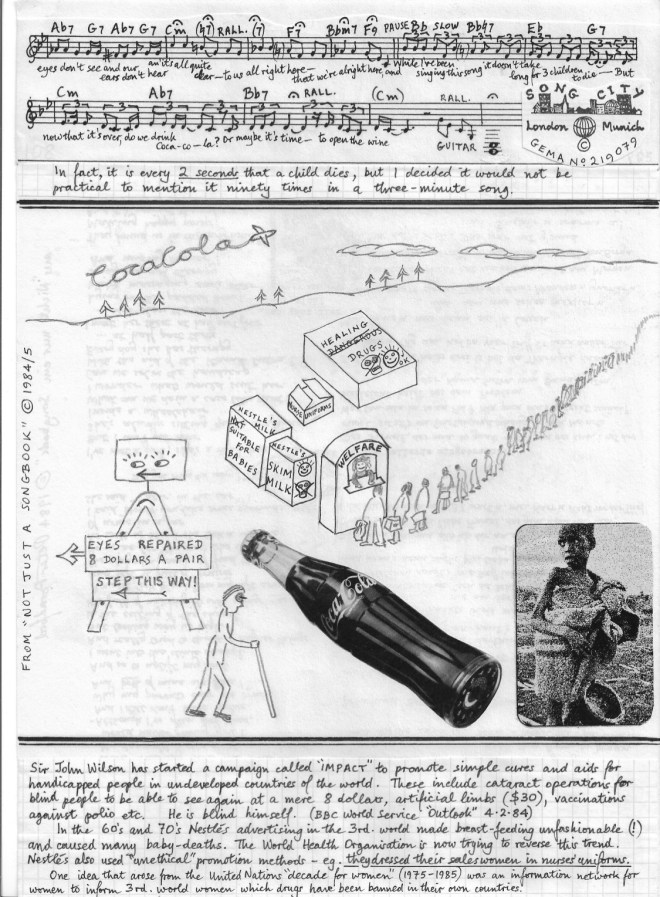 Ab7 G7 Ab7 G7 Cm (♮7) RALL. (7) F7 Bbm7 F9 PAUSE Bb SLOW Bb♮7 Eb G7
eyes don't see and our ears don't hear an' it's all quite clear — to us all right here — that we're alright here, and * While I've been singing this song it doesn't take long for 3 children to die — But
Cm Ab7 Bb7 RALL. (Cm) RALL.
now that it's over, do we drink Coca-co-la? Or maybe it's time — to open the wine
GUITAR
SONG CITY
London Munich
©
GEMA No 219079
In fact, it is every 2 seconds that a child dies, but I decided it would not be
practical to mention it ninety times in a three-minute song.
CocaCola
HEALING
DANGEROUS
DRUGS
OK
NURSE UNIFORMS
NESTLE'S
MILK
NOT
SUITABLE
FOR
BABIES
NESTLE'S
SKIM
MILK
WELFARE
FROM "NOT JUST A SONGBOOK" © 1984/5
EYES REPAIRED
8 DOLLARS A PAIR
STEP THIS WAY!
Coca-Cola
Sir John Wilson has started a campaign called "IMPACT" to promote simple cures and aids for
handicapped people in undeveloped countries of the world. These include cataract operations for
blind people to be able to see again at a mere 8 dollars, artificial limbs ($30), vaccinations
against polio etc. He is blind himself. (BBC World Service "Outlook" 4.2.84)
In the 60's and 70's Nestlé's advertising in the 3rd. world made breast-feeding unfashionable (!)
and caused many baby-deaths. The World Health Organisation is now trying to reverse this trend.
Nestlé's also used "unethical" promotion methods - eg. they dressed their saleswomen in nurse's uniforms.
One idea that arose from the United Nations "decade for women" (1975-1985) was an information network for
women to inform 3rd. world women which drugs have been banned in their own countries!